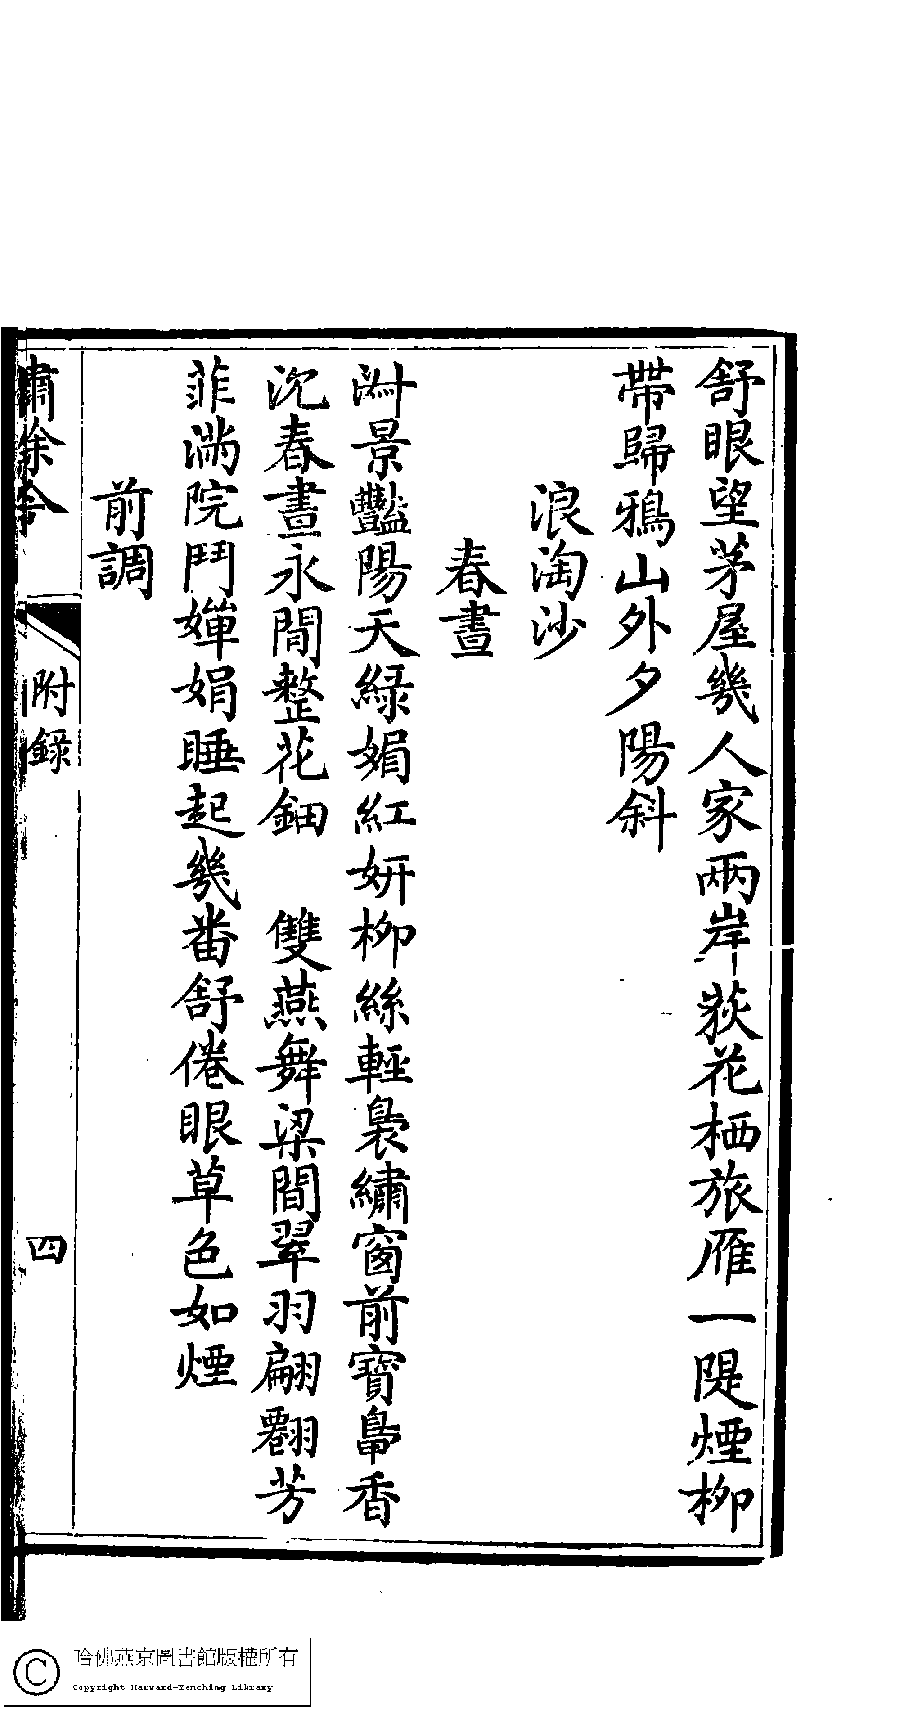 舒眼望茅屋幾人家兩岸荻花栖旅雁一隄煙柳
帶歸鴉山外夕陽斜
浪淘沙
春晝
淑景豔陽天綠媚紅妍柳絲輕裊繡窗前寶鼎香
沉春晝永閒整花鈿 雙燕舞梁間翠羽翩翻芳
菲滿院鬥嬋娟睡起幾番舒倦眼草色如煙
前調
附錄
四
哈佛燕京圖書館版權所有
Copyright Harvard-Yenching Library